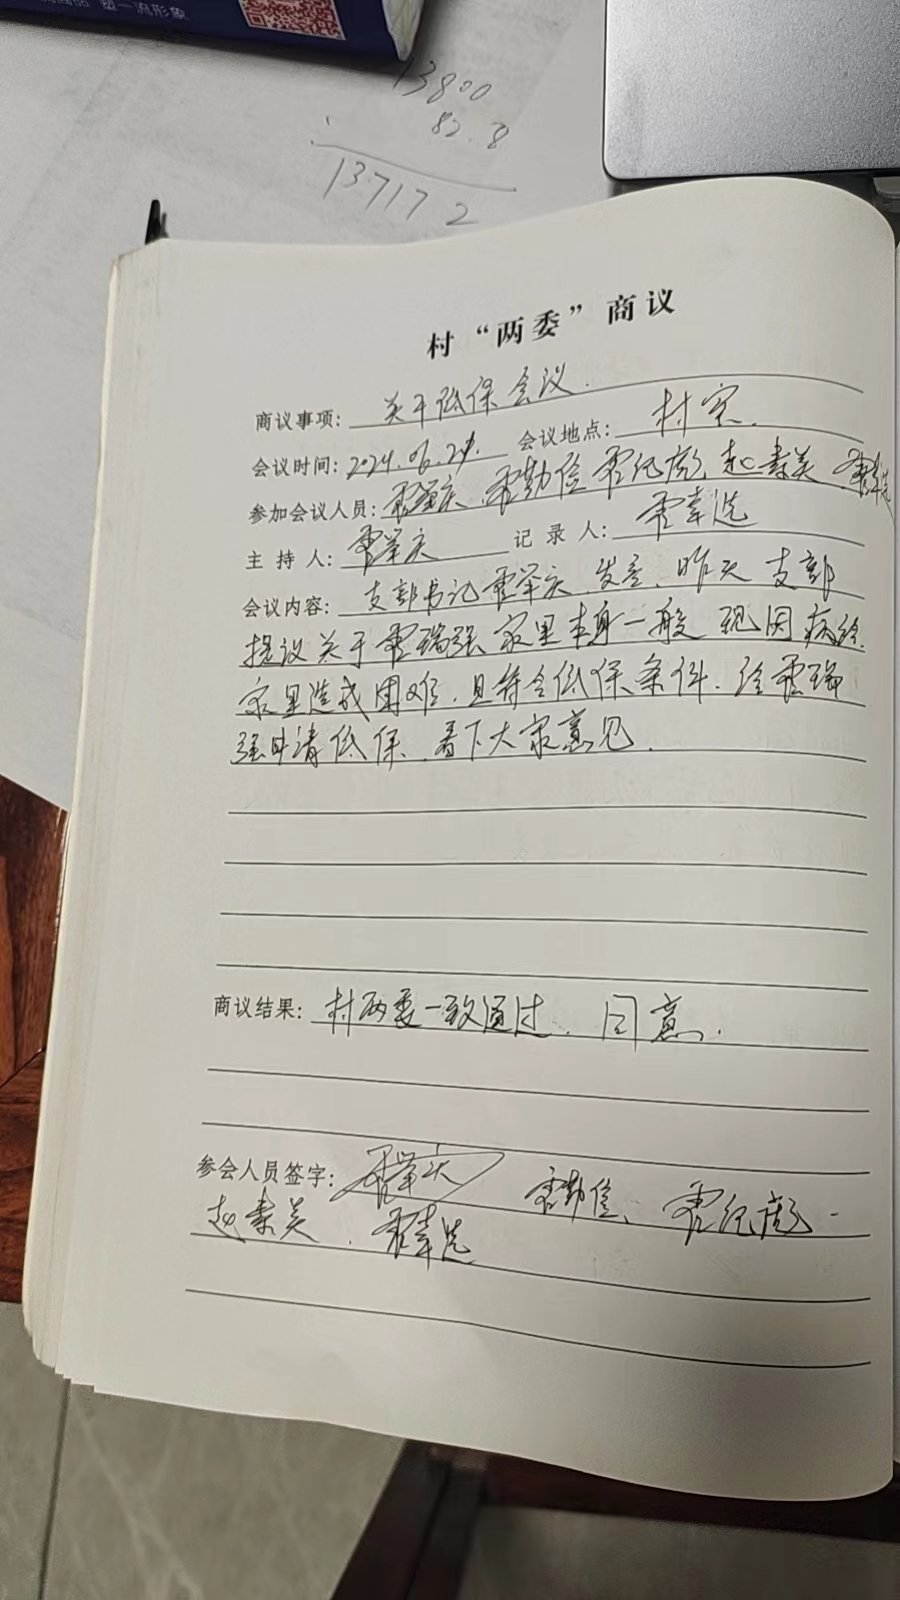 塑一流形象
13800
82.8
137172
村“两委”商议
商议事项: 关于低保会议.
会议时间: 2024.06.24. 会议地点: 村室.
参加会议人员: 霍举庆 霍勤俭 霍纪彪 赵素美 霍幸选
主持人: 霍举庆 记录人: 霍幸选
会议内容: 支部书记霍举庆发言、昨天支部
提议关于霍瑞强家里本身一般 现因病给
家里造成困难、且符合低保条件. 给霍瑞
强申请低保、看下大家意见.
商议结果: 村两委一致通过、同意.
参会人员签字: 霍举庆 霍勤俭、霍纪彪
赵素美、霍幸选